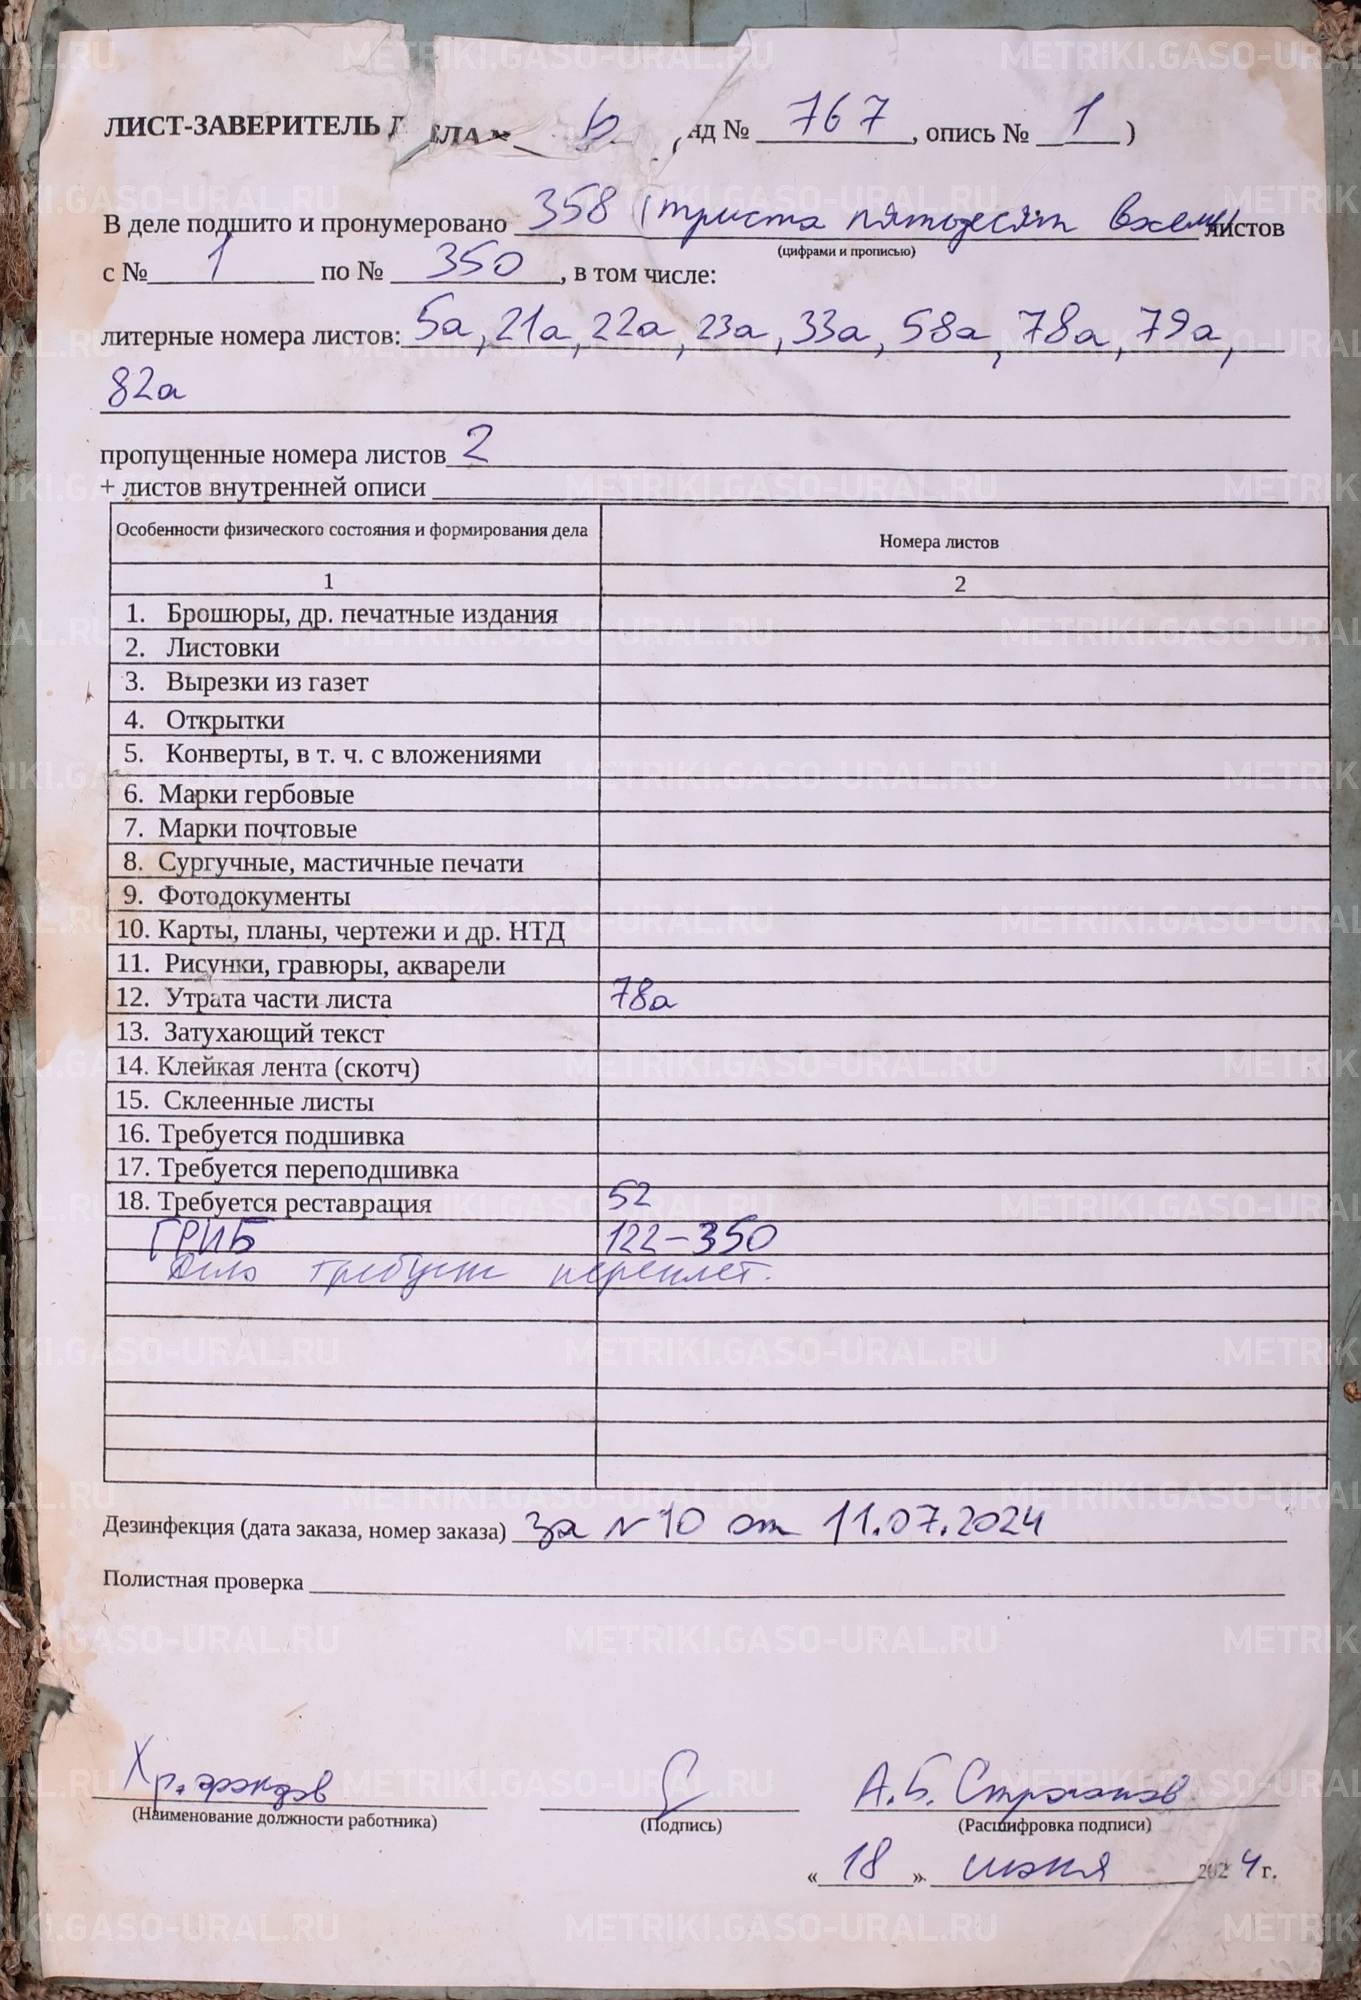 ЛИСТ-ЗАВЕРИТЕЛЬ ДЕЛА № 6 нд № 767, опись № 1 )
В деле подшито и пронумеровано 358 (триста пятьдесят восемь листов
(цифрами и прописью)
с № 1 по № 350, в том числе:
литерные номера листов: 5а, 21а, 22а, 23а, 33а, 58а, 78а, 79а,
82а
пропущенные номера листов 2
+ листов внутренней описи
Особенности физического состояния и формирования дела Номера листов
1 2
1. Брошюры, др. печатные издания
2. Листовки
3. Вырезки из газет
4. Открытки
5. Конверты, в т. ч. с вложениями
6. Марки гербовые
7. Марки почтовые
8. Сургучные, мастичные печати
9. Фотодокументы
10. Карты, планы, чертежи и др. НТД
11. Рисунки, гравюры, акварели
12. Утрата части листа 78а
13. Затухающий текст
14. Клейкая лента (скотч)
15. Склеенные листы
16. Требуется подшивка
17. Требуется переподшивка
18. Требуется реставрация 52
ГРИБ 122-350
Дело требует переплет.
Дезинфекция (дата заказа, номер заказа) за № 10 от 11.07.2024
Полистная проверка
Хр. фондов А.Б. Строганов
(Наименование должности работника) (Подпись) (Расшифровка подписи)
« 18 » июня 2024 г.
METRIKI.GASO-URAL.RU